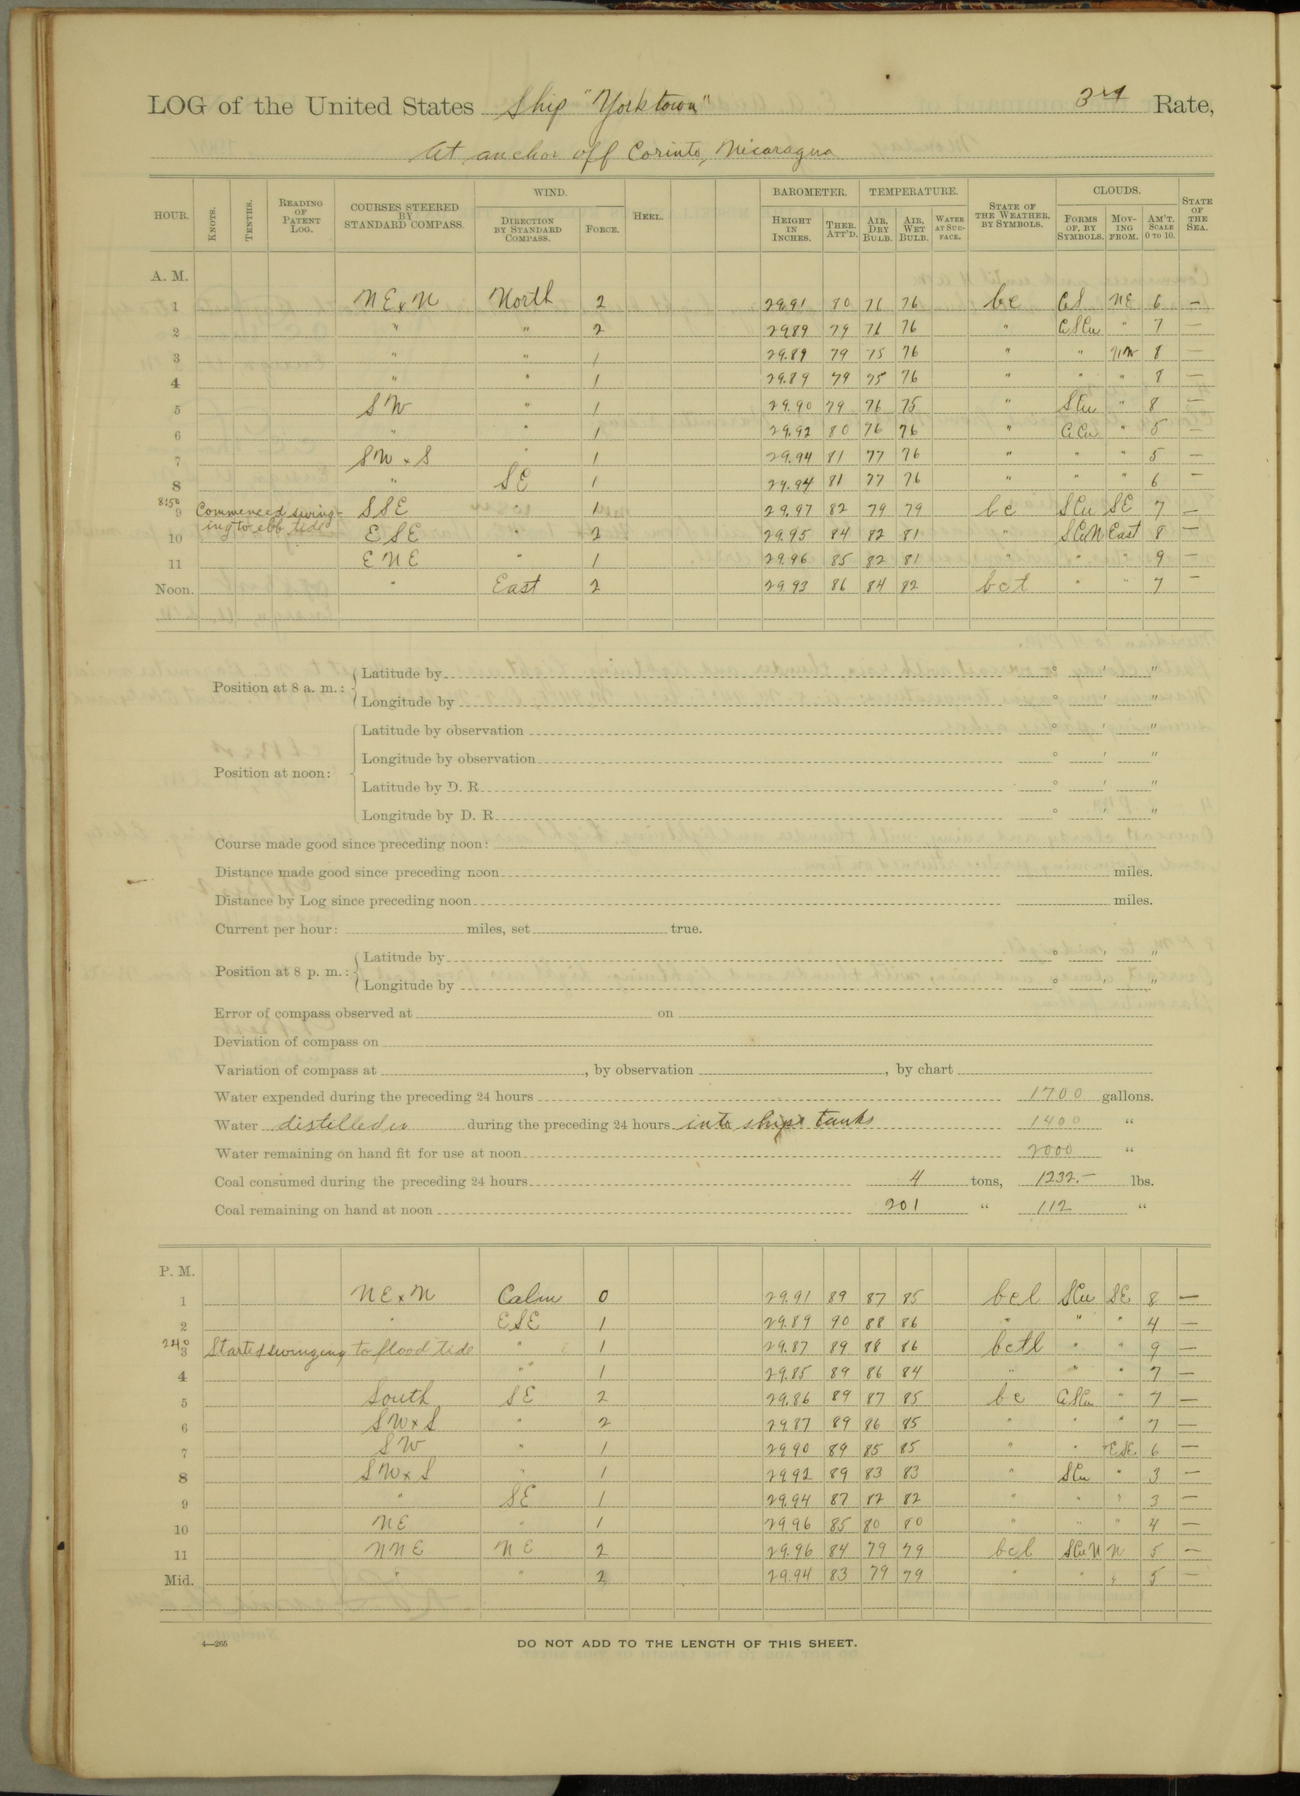 LOG of the United States Ship "Yorktown" 3rd Rate,
At anchor off Corinto, Nicaragua
HOUR. KNOTS. TENTHS. READING OF PATENT LOG. COURSES STEERED BY STANDARD COMPASS. WIND. DIRECTION BY STANDARD COMPASS. FORCE. HEEL. BAROMETER. HEIGHT IN INCHES. THER. ATT'D. TEMPERATURE. AIR, DRY BULB. AIR, WET BULB. WATER AT SURFACE. STATE OF THE WEATHER, BY SYMBOLS. CLOUDS. FORMS OF, BY SYMBOLS. MOVING FROM. AM'T. SCALE 0 TO 10. STATE OF THE SEA.
A. M.
1 NE x N North 2 29.91 80 76 76 bc CS NE 6 —
2 " " 2 29.89 79 76 76 " C SCu " 7 —
3 " " 1 29.89 79 75 76 " " NW 8 —
4 " " 1 29.89 79 75 76 " " " 8 —
5 SW " 1 29.90 79 76 75 " SCu " 8 —
6 " " 1 29.92 80 76 76 " C Cu " 5 —
7 SW x S " 1 29.94 81 77 76 " " " 5 —
8 " SE 1 29.94 81 77 76 " " " 6 —
8:50 9 Commenced swing- SSE " 1 29.97 82 79 79 bc SCu SE 7 —
10 ing to ebb tide ESE " 2 29.95 84 82 81 " SCuN East 8 —
11 ENE " 1 29.96 85 82 81 " " " 9 —
Noon. " East 2 29.93 86 84 82 bct " " 7 —
Position at 8 a. m.: Latitude by ° ' "
Longitude by ° ' "
Position at noon: Latitude by observation ° ' "
Longitude by observation ° ' "
Latitude by D. R. ° ' "
Longitude by D. R. ° ' "
Course made good since preceding noon:
Distance made good since preceding noon miles.
Distance by Log since preceding noon miles.
Current per hour: miles, set true.
Position at 8 p. m.: Latitude by ° ' "
Longitude by ° ' "
Error of compass observed at on
Deviation of compass on
Variation of compass at , by observation , by chart
Water expended during the preceding 24 hours 1700 gallons.
Water distilled during the preceding 24 hours into ship's tanks 1400 "
Water remaining on hand fit for use at noon 2000 "
Coal consumed during the preceding 24 hours 4 tons, 1232.— lbs.
Coal remaining on hand at noon 201 " 112 "
P. M.
1 NE x N Calm 0 29.91 89 87 85 bcl SCu SE 8 —
2 " ESE 1 29.89 90 88 86 " " " 4 —
2:40 3 Started swinging to flood tide " 1 29.87 89 88 86 bctl " " 9 —
4 " 1 29.85 89 86 84 " " " 7 —
5 South SE 2 29.86 89 87 85 bc C SCu " 7 —
6 SW x S " 2 29.87 89 86 85 " " " 7 —
7 SW " 1 29.90 89 85 85 " " ESE 6 —
8 SW x S " 1 29.92 89 83 83 " SCu " 3 —
9 " SE 1 29.94 87 82 82 " " " 3 —
10 NE " 1 29.96 85 80 80 " " " 4 —
11 NNE NE 2 29.96 84 79 79 bcl SCuN N 5 —
Mid. " " 2 29.94 83 79 79 " " " 5 —
4—265 DO NOT ADD TO THE LENGTH OF THIS SHEET.